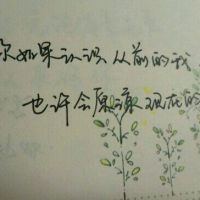 你如果认识从前的我
也许会原谅现在的